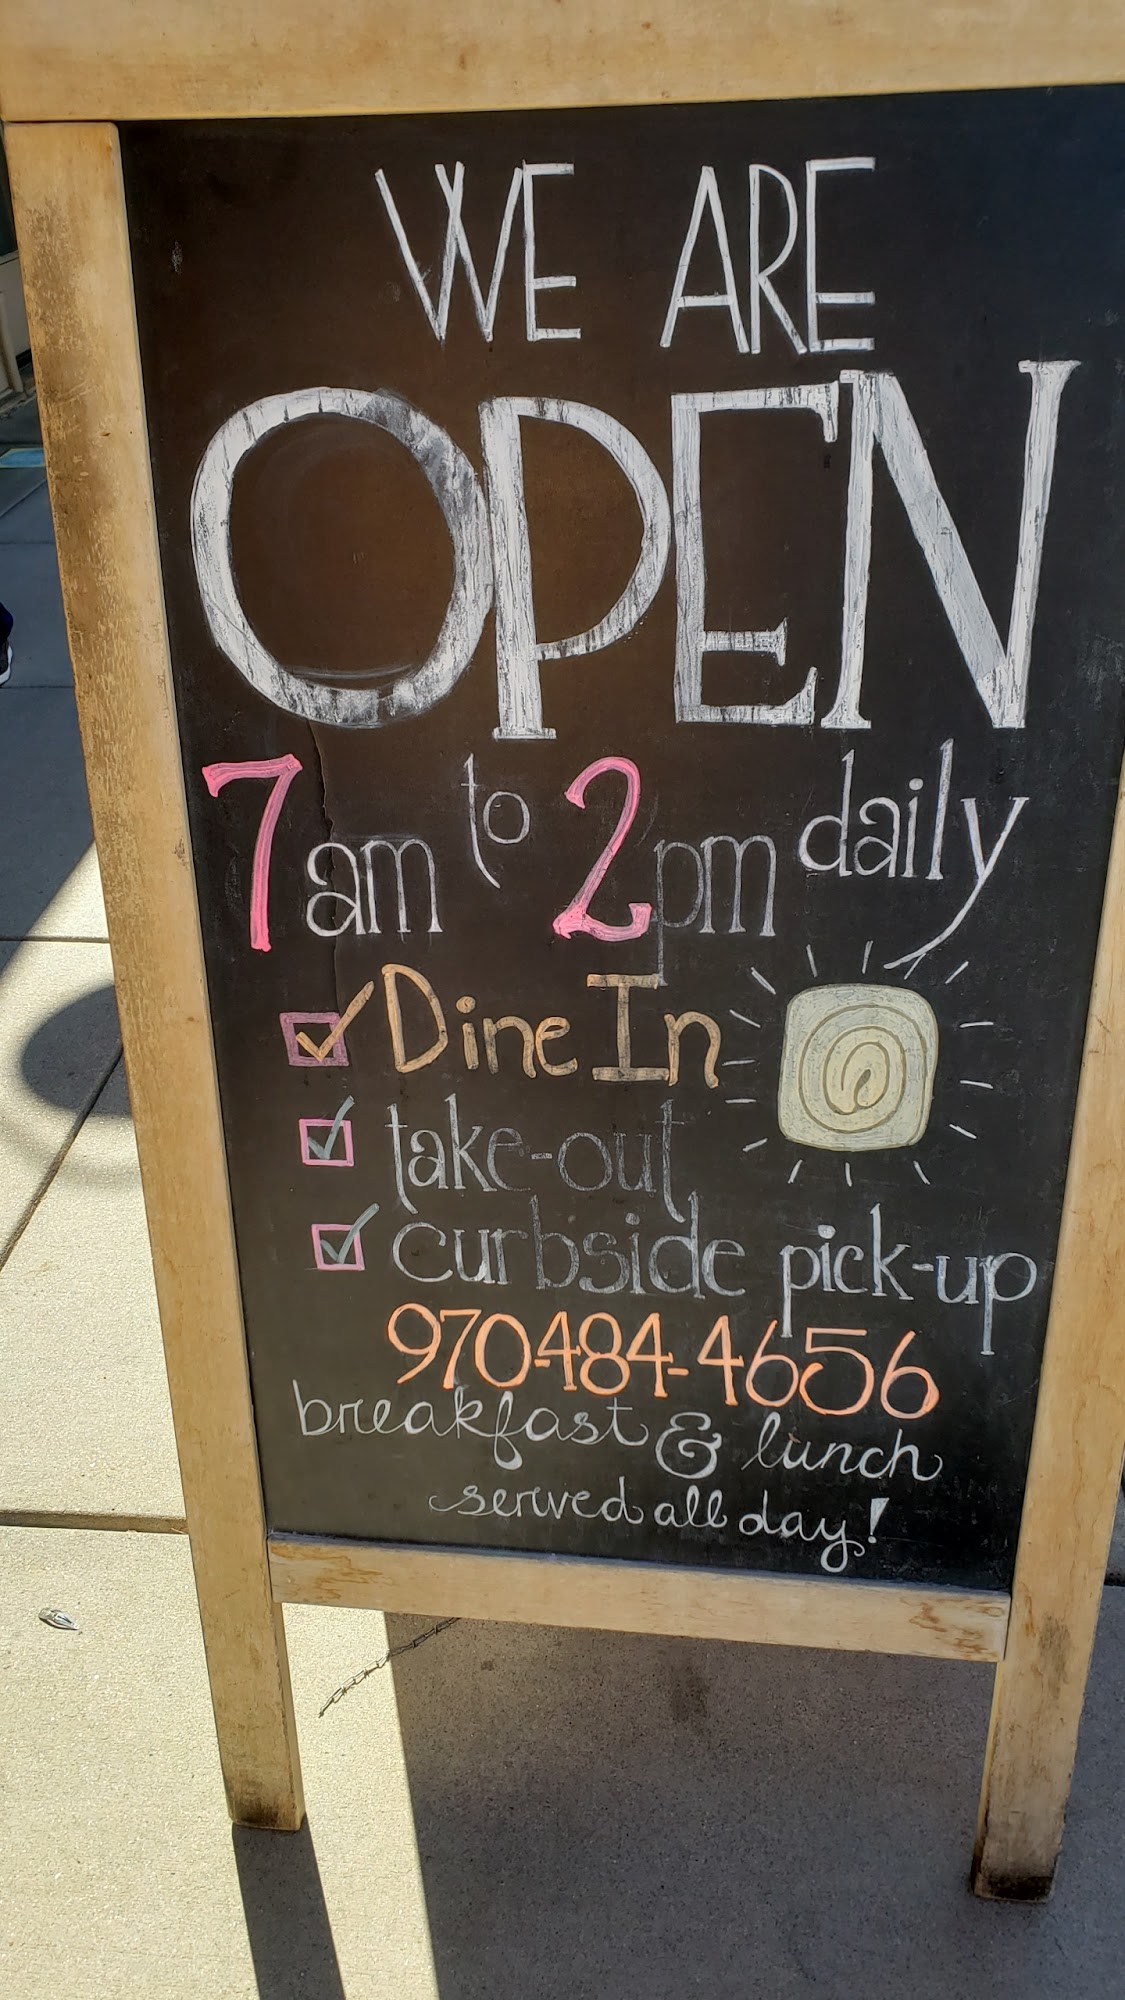 WE ARE
OPEN
7am to 2pm daily
Dine In
take-out
curbside pick-up
970-484-4656
breakfast & lunch
served all day!